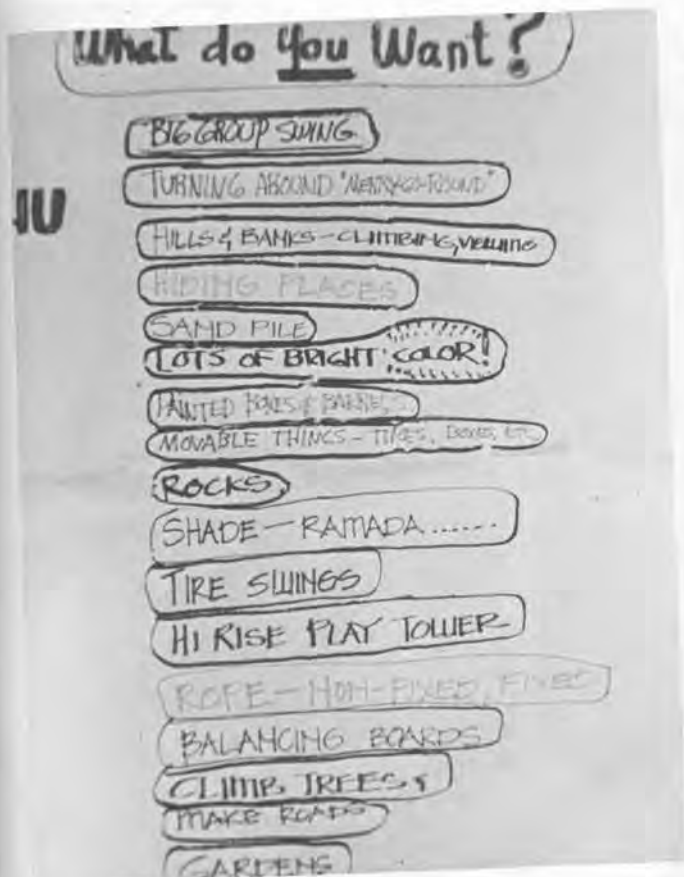 What do you Want?
BIG GROUP SWING
TURNING AROUND "MERRY-GO-ROUND"
HILLS & BANKS - CLIMBING, VIEWING
HIDING PLACES
SAND PILE
LOTS OF BRIGHT COLOR!
PAINTED BOXES & BARRELS
MOVABLE THINGS - TIRES, BOXES, ETC
ROCKS
SHADE - RAMADA......
TIRE SWINGS
HI RISE PLAY TOWER
ROPE - NON-FIXED, FIXED
BALANCING BOARDS
CLIMB TREES &
MAKE ROADS
GARDENS